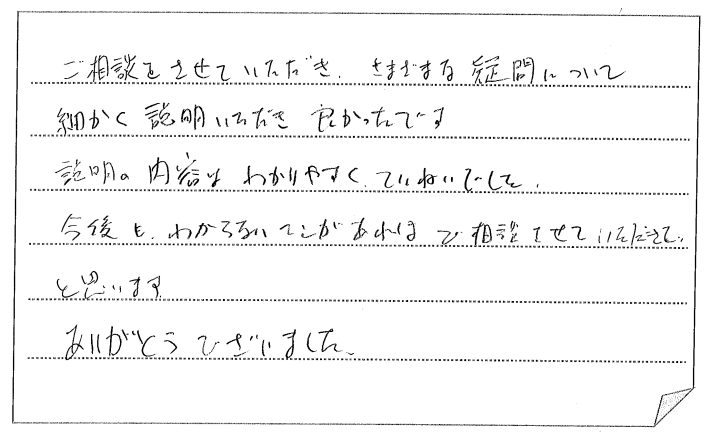 ご相談をさせていただき、さまざまな疑問について
細かく説明いただき良かったです
説明の内容はわかりやすく、ていねいでした。
今後も、わからないてんがあればご相談させていただきたい
と思います
ありがとうございました。